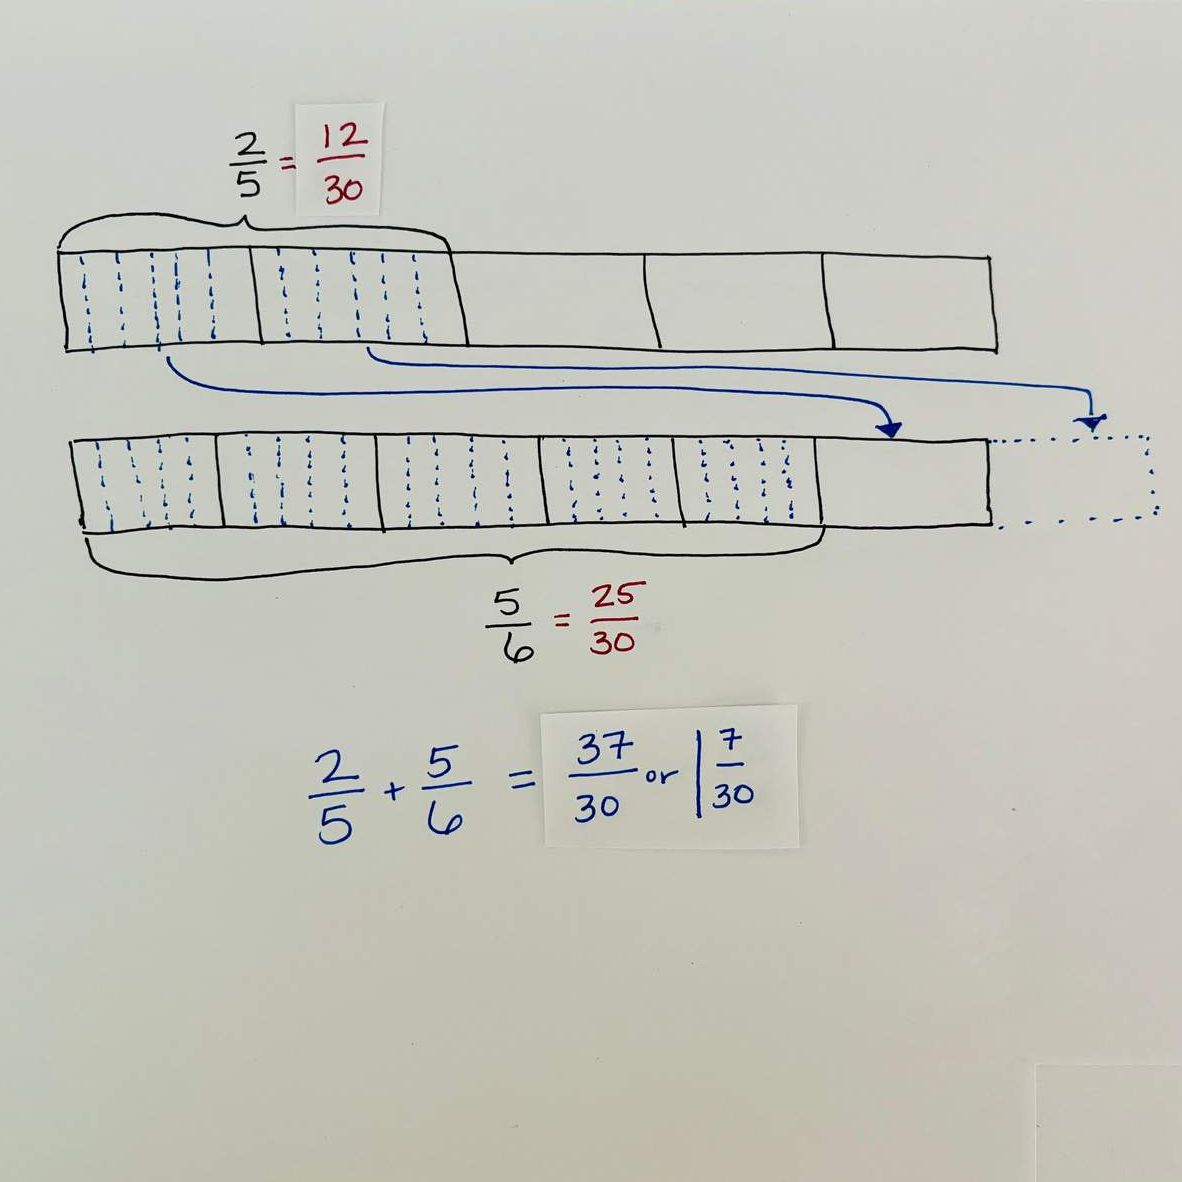 2/5 = 12/30
5/6 = 25/30
2/5 + 5/6 = 37/30 or 1 7/30